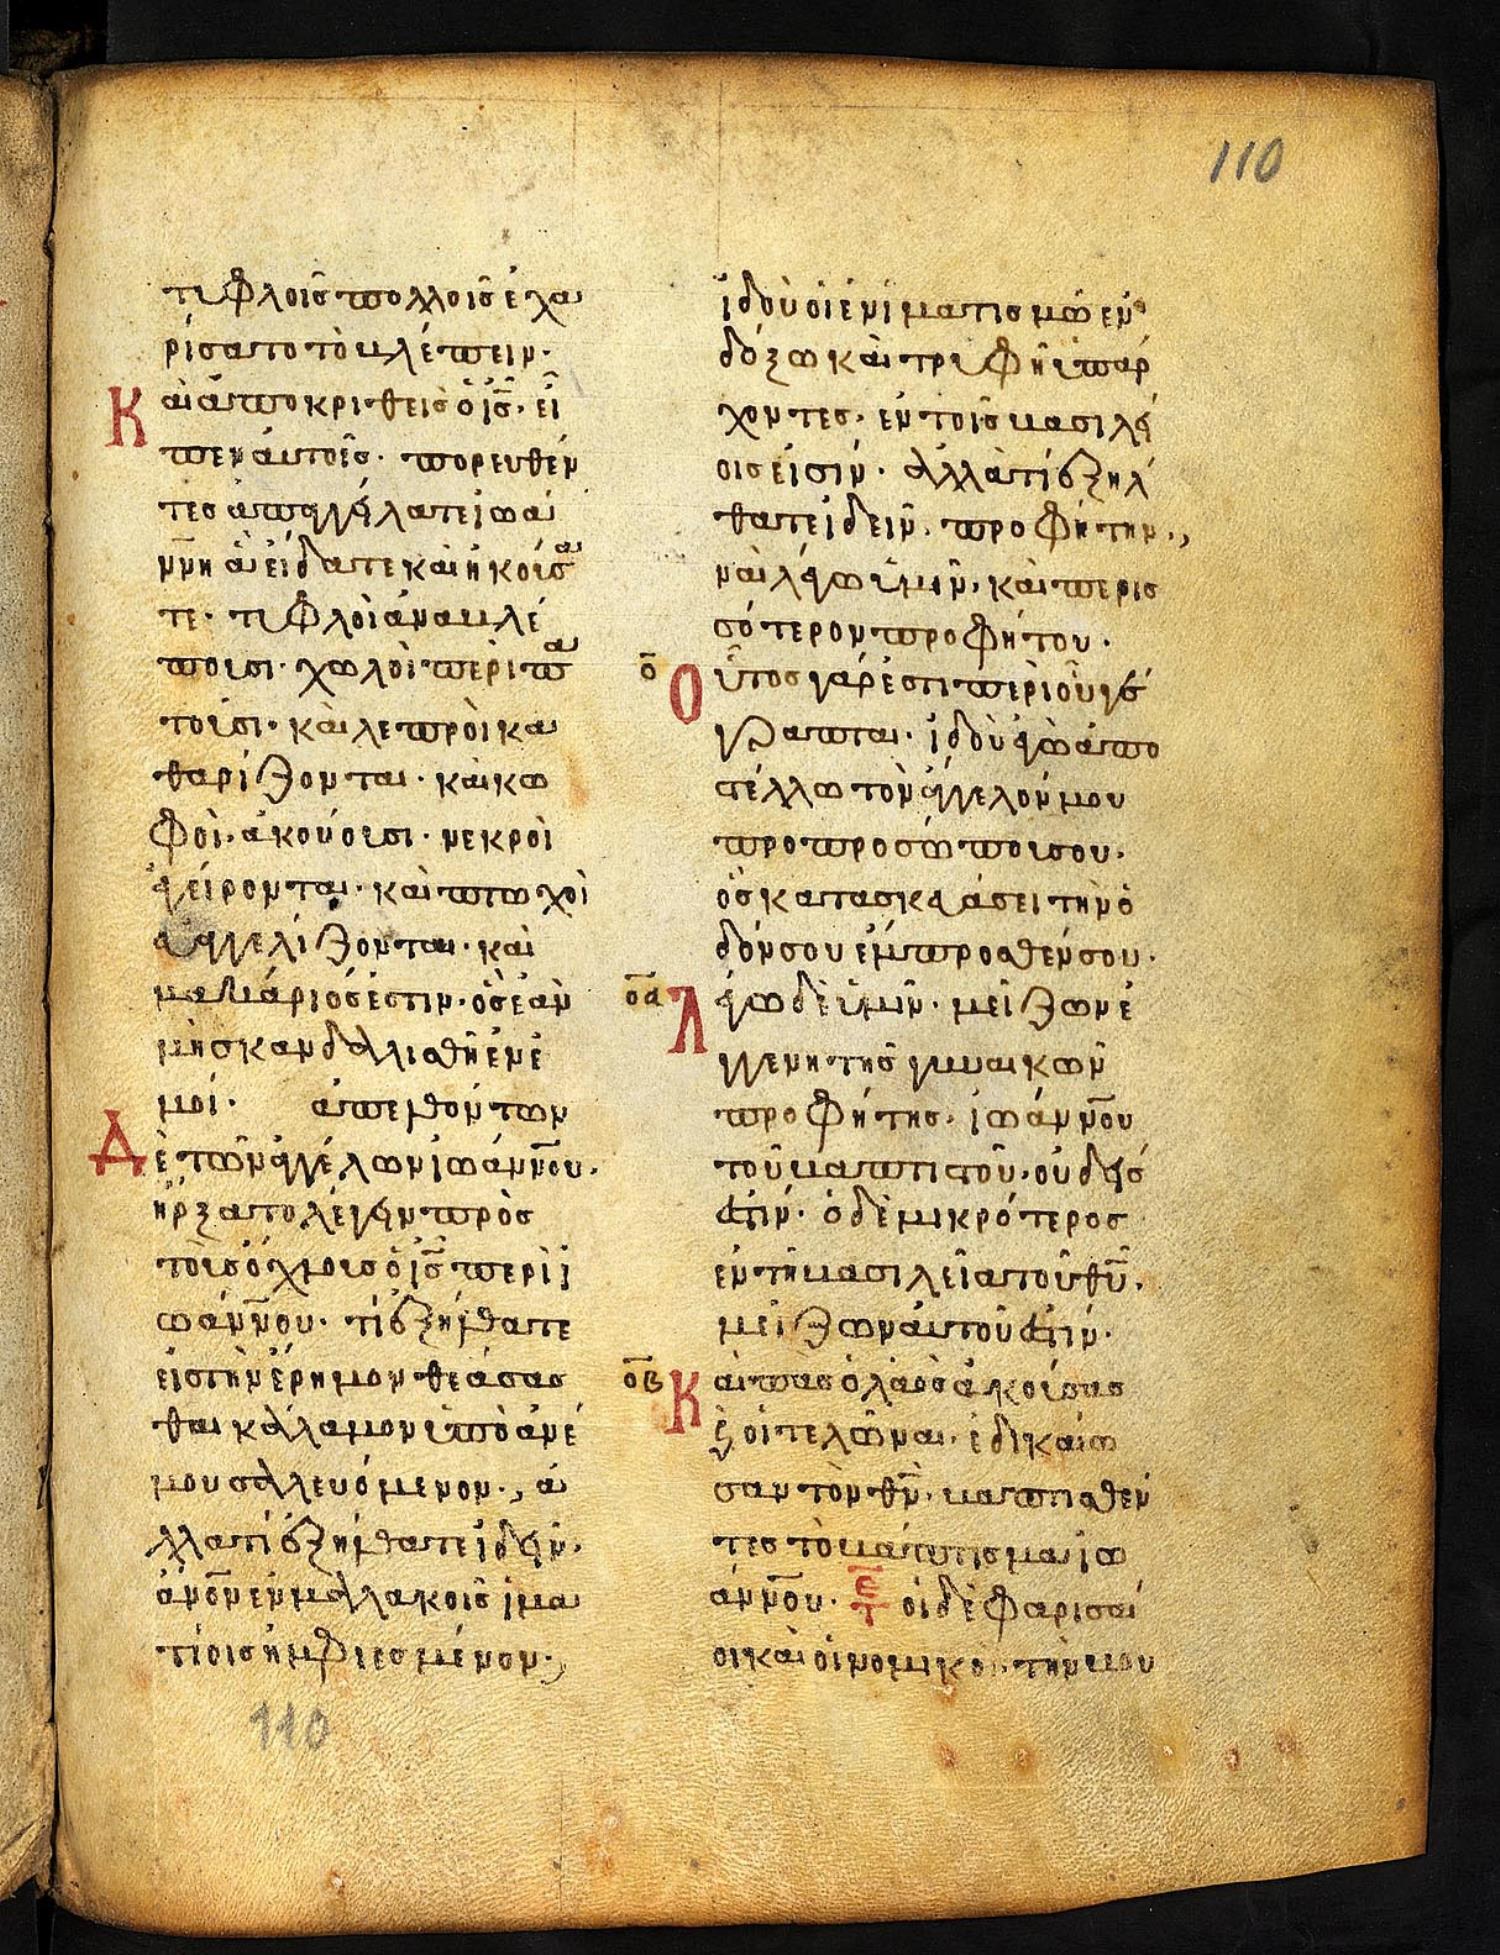 110
τυφλοῖς πολλοῖς ἐχα
ρίσατο τὸ βλέπειν·
Καὶ ἀποκριθεὶς ὁ ις̅· εἶ
πεν αὐτοῖς· πορευθέν
τες ἀπαγγείλατε ἰωά
νν̅η ἃ εἴδατε καὶ ἠκούσα
τε· τυφλοὶ ἀναβλέ
πουσι· χωλοὶ περιπα
τοῦσι· καὶ λεπροὶ κα
θαρίζονται· καὶ κω
φοὶ· ἀκούουσι· νεκροὶ
ἐγείρονται· καὶ πτωχοὶ
εὐαγγελίζονται· καὶ
μακάριός ἐστιν· ὃς ἐὰν
μὴ σκανδαλισθῆ ἐν ἐ
μοί· ἀπελθόντων
Δὲ τῶν ἀγγέλων ἰωάνν̅ου·
ἤρξατο λέγειν πρὸς
τοὺς ὄχλους ὁ ις̅ περὶ ἰ
ωάνν̅ου· τί ἐξήλθατε
εἰς τὴν ἔρημον θεάσασ
θαι κάλαμον ὑπὸ ἀνέ
μου σαλλευόμενον·, ἀ
λλὰ τί ἐξήλθατε ἰδεῖν·
ἄνο̅ν ἐν μαλλακοῖς ἱμα
τίοις ἠμφιεσμένον·,
110
ἰδοὺ οἱ ἐν ἱματισμῶ ἐν
δόξω καὶ τρυφῆ ὑπάρ
χοντες· ἐν τοῖς βασιλεί
οις εἰσίν· ἀλλὰ τί ἐξήλ
θατε ἰδεῖν· προφήτην·,
ναὶ λέγω ὑμῖν· καὶ περισ
σότερον προφήτου·
ο̅ Οὗτος γάρ ἐστι περὶ οὗ γέ
γραπται· ἰδοὺ ἐγὼ ἀπο
στέλλω τὸν ἄγγελόν μου
πρὸ προσώπου σου·
ὃς κατασκευάσει τὴν ὁ
δόν σου ἔμπροσθέν σου·
ο̅α Λέγω δὲ ὑμῖν· μείζων ἐ
γγενητῆς γυναικῶν
προφήτης· ἰωάνν̅ου
τοῦ βαπτιστοῦ· οὐδείς ἐ
στίν· ὁ δὲ μικρότερος
ἐν τῆ βασιλεία τοῦ θυ̅·
μείζων αὐτοῦ ἐστίν·
ο̅β Καὶ πᾶς ὁ λαὸς ἀκούσας
ξ οἱ τελῶναι· ἐδικαίω
σαν τὸν θν̅· βαπτισθέν
τες τὸ βάπτισμα ἰω
άνν̅ου· ε̅τ οἱ δὲ φαρισαῖ
οι καὶ οἱ νομικοὶ· τὴν βου